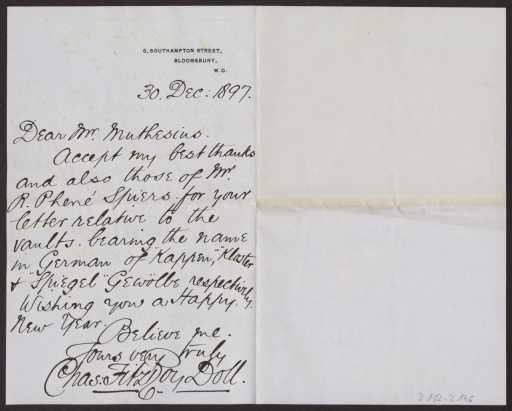 5, SOUTHAMPTON STREET,
BLOOMSBURY,
W.C.
30. Dec: 1897.
Dear Mr. Muthesius.
Accept my best thanks
and also those of Mr.
R. Phené Spiers for your
letter relative to the
vaults. bearing the name
in German of "Kappen," "Kloster"
& "Spiegel" Gewölbe respectively.
Wishing you a Happy.
New Year.
Believe me.
Yours very truly
Chas. Fitz Roy Doll.